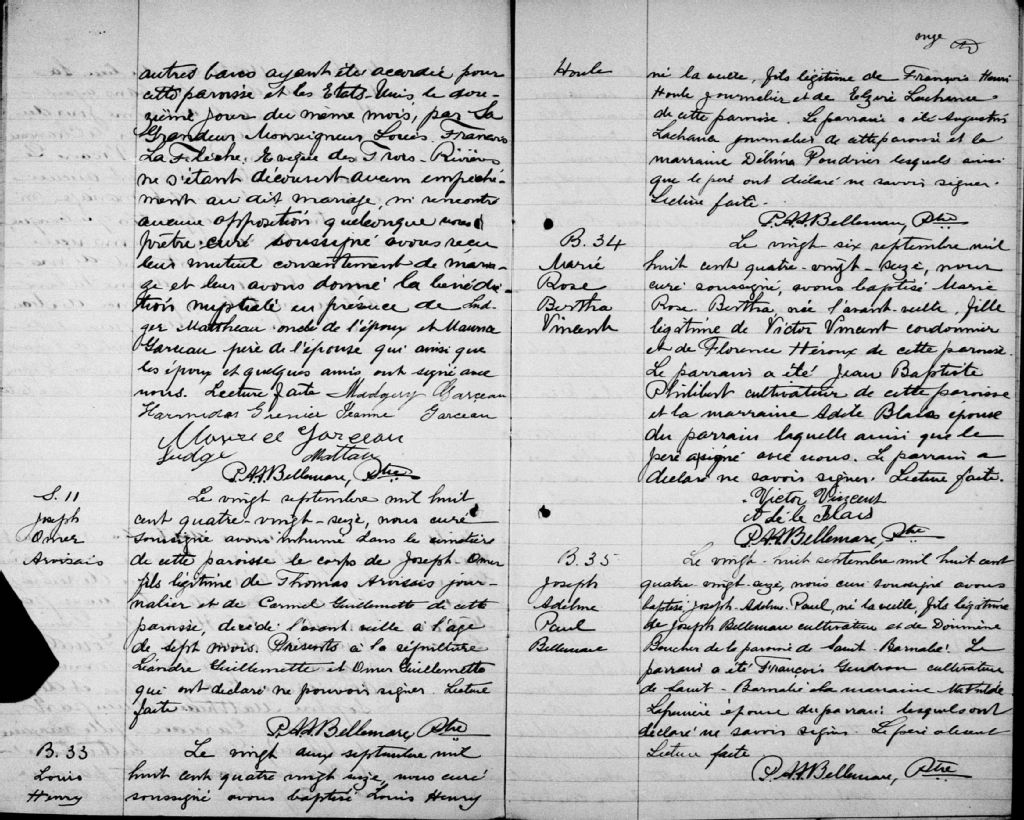 autres bancs ayant été accordée pour
cette paroisse et les Etats-Unis le dou-
zième jour du même mois, par Sa
Grandeur Monseigneur Louis François
La Flèche, Evêque des Trois-Rivières
ne s'étant découvert aucun empêche-
ment au dit mariage, ni rencontré
aucune opposition quelconque nous
prêtre curé soussigné avons reçu
leur mutuel consentement de maria-
ge et leur avons donné la bénédic-
tion nuptiale en présence de Lud-
ger Mattheau oncle de l'époux et Maurice
Garceau père de l'épouse qui ainsi que
les époux et quelques amis ont signé avec
nous. Lecture faite Garceau
Harmidas Grenier Jeanne Garceau
Maurice Garceau
Ludge Mattau
P.H.Bellemare, Ptre
S. 11
Joseph
Omer
Arvisais
Le vingt septembre mil huit
cent quatre-vingt-seize, nous curé
soussigné avons inhumé dans le cimetière
de cette paroisse le corps de Joseph Omer
fils légitime de Thomas Arvisais jour-
nalier et de Carmel Guillemette de cette
paroisse, décédé l'avant veille à l'âge
de sept mois. Présents à la sépulture
Léandre Guillemette et Omer Guillemette
qui ont déclaré ne pouvoir signer. Lecture
faite
P.H.Bellemare, Ptre
B. 33
Louis
Henry
Le vingt deux septembre mil
huit cent quatre vingt seize, nous curé
soussigné avons baptisé Louis Henry
onze
Houle
né la veille, fils légitime de François Henri
Houle journalier et de Elzire Lachance
de cette paroisse. Le parrain a été Augustin
Lachance journalier de cette paroisse et la
marraine Délina Poudrier lesquels ainsi
que le père ont déclaré ne savoir signer.
Lecture faite.
P.H.Bellemare, Ptre
B. 34
Marie
Rose
Bertha
Vincent
Le vingt six septembre mil
huit cent quatre-vingt-seize, nous
curé soussigné, avons baptisé Marie
Rose Bertha née l'avant-veille fille
légitime de Victor Vincent cordonnier
et de Florence Héroux de cette paroisse.
Le parrain a été Jean Baptiste
Philibert cultivateur de cette paroisse
et la marraine Adèle Blais épouse
du parrain laquelle ainsi que le
père a signé avec nous. Le parrain a
déclaré ne savoir signer. Lecture faite.
Victor Vincent
Adèle Blais
P.H.Bellemare, Ptre
B. 35
Joseph
Adélme
Paul
Bellemare
Le vingt-huit septembre mil huit cent
quatre vingt-seize, nous curé soussigné avons
baptisé Joseph-Adelme Paul, né la veille, fils légitime
de Joseph Bellemare cultivateur et de Domitime
Boucher de la paroisse de Saint-Barnabé. Le
parrain a été François Gendron cultivateur
de Saint-Barnabé et la marraine Mathilde
épouse du parrain lesquels ont
déclaré ne savoir signer. Le père absent
Lecture faite
P.H.Bellemare, Ptre